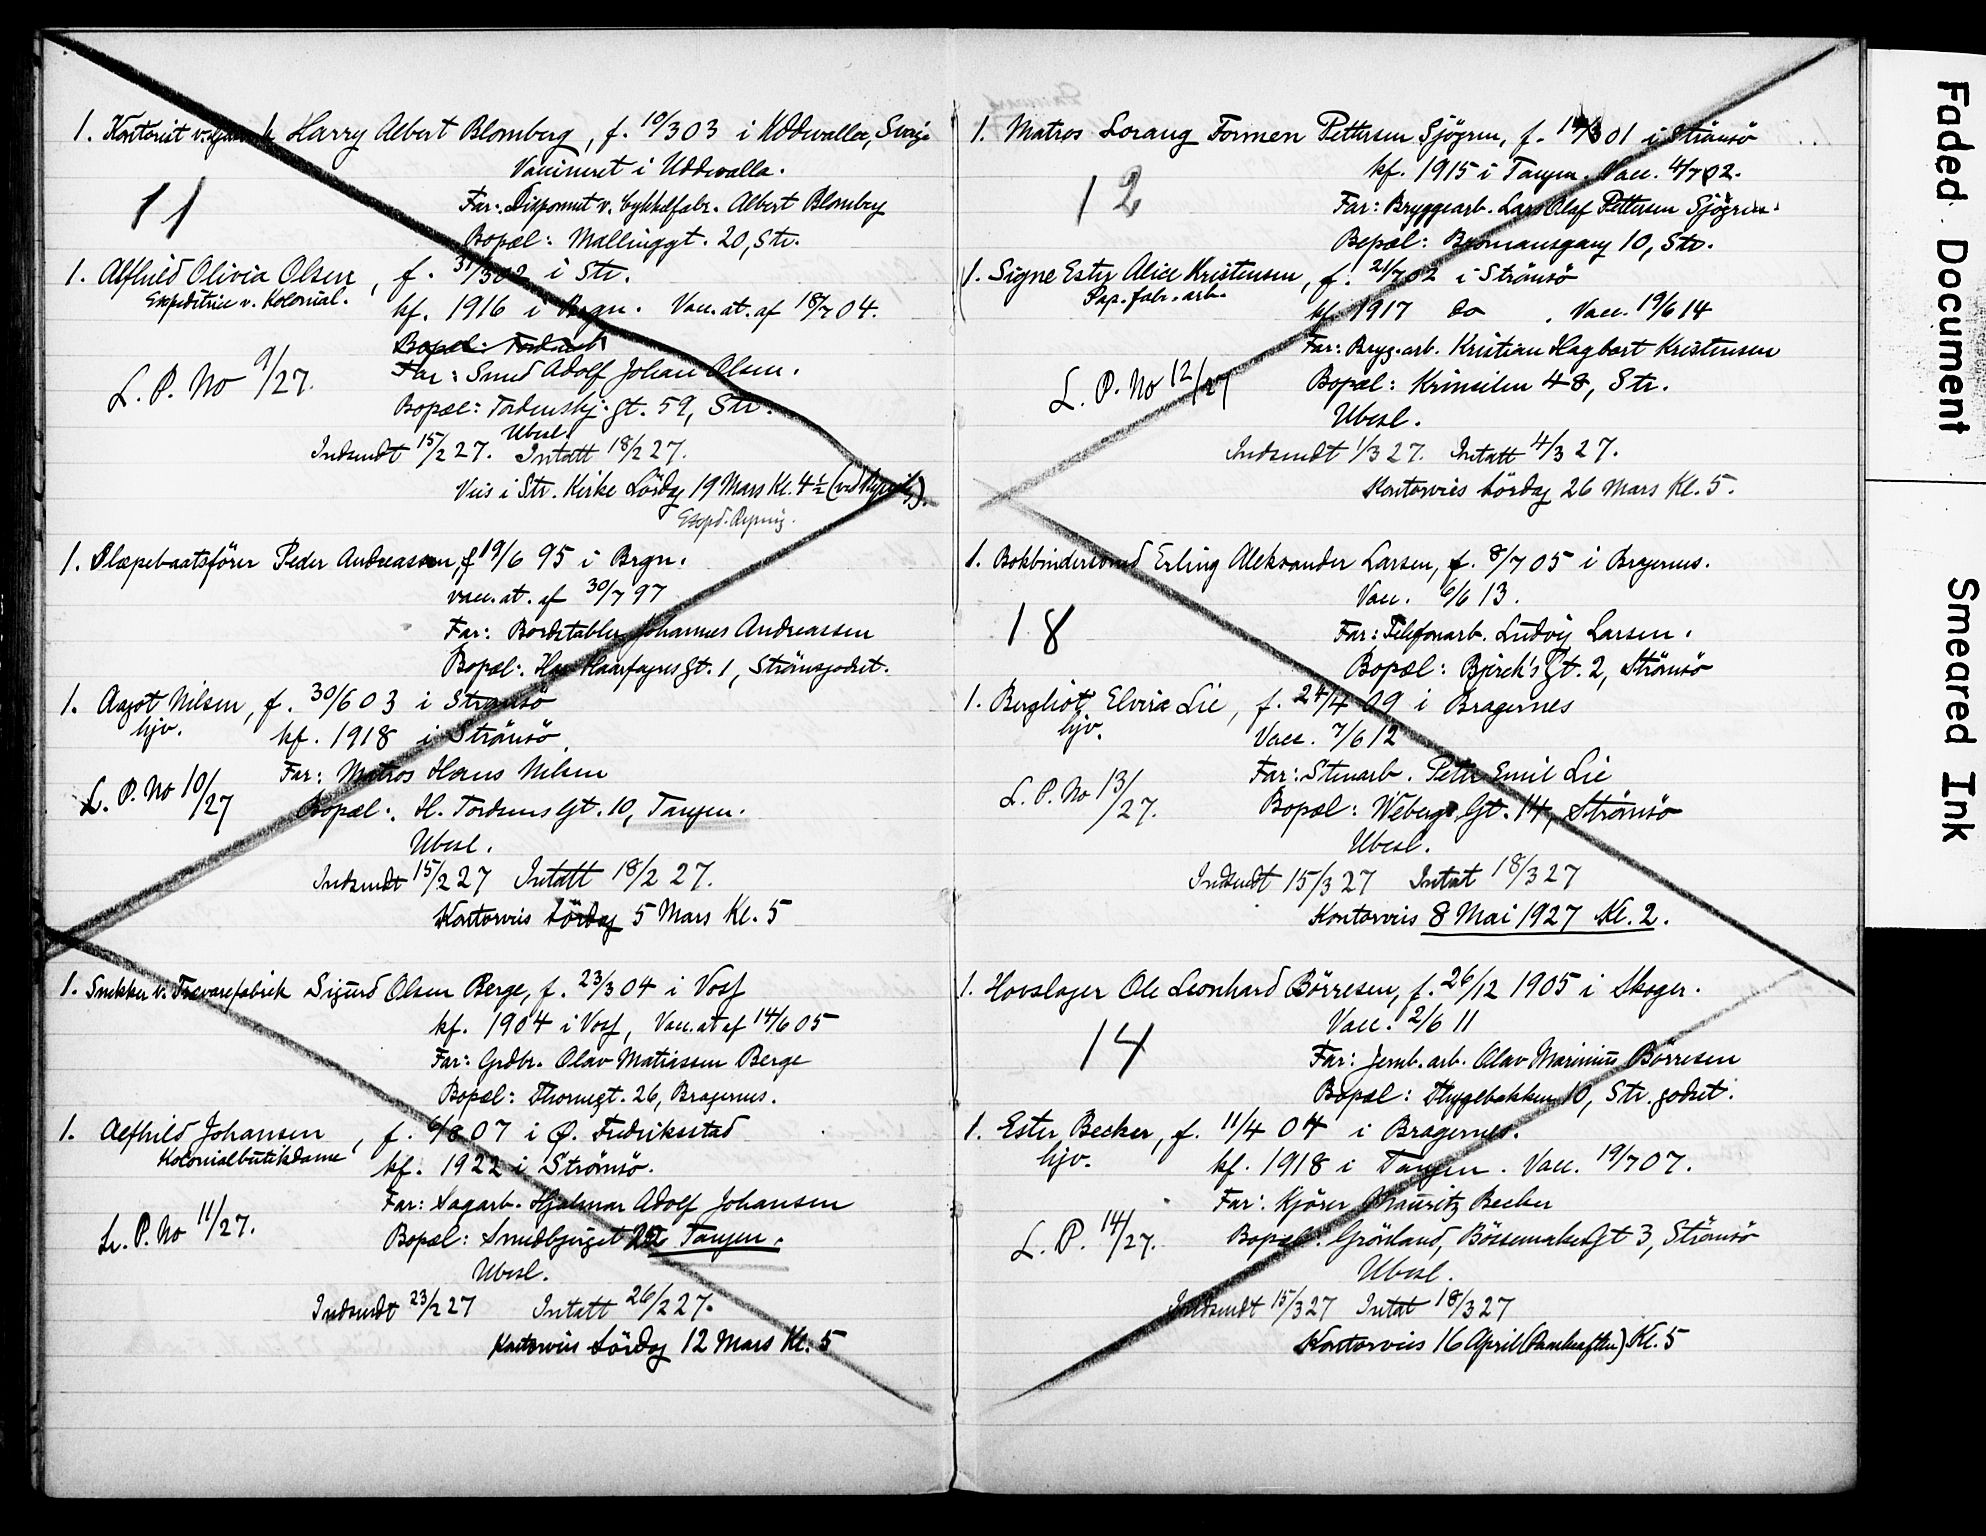 1. Kontorist v. Harry Albert Blomberg, f. 10/3 03 i Uddevalla, Sverige
Vaccineret i Uddevalla.
11
Far: Disponent v. Cykkelfabr. Albert Blomberg
Bopæl: Mallinggt. 20, Str.
1. Alfhild Olivia Olsen, f. 31/3 02 i Str.
Expeditrice v. Kolonial.
kf. 1916 i Brgn. Vacc. at. af 18/7 04.
Bopæl: Tordensk
Far: Smed Adolf Johan Olsen.
L. P. No 9/27.
Bopæl: Tordenskj. gt. 59, Str.
Ubesl.
Indsendt 15/2 27. Intatt 18/2 27.
Vies i Str. Kirke Lördag 19 Mars Kl. 4½
1. Slæpebaatsförer Peder Andreassen, f 19/6 95 i Brgn.
vacc. at. af 30/7 97
Far: Bordstabler Johannes Andreassen
Bopæl: Har. Haarfagresgt. 1, Strömsgodset.
1. Aagot Nilsen, f. 30/6 03 i Strömsö
hjv.
kf. 1918 i Strömsö
Far: Matros Hans Nilsen
L. P. No 10/27
Bopæl: H. Tordsensgt. 10, Tangen.
Ubesl.
Indsendt 15/2 27 Intatt 18/2 27.
Kontorvies Lördag 5 Mars Kl. 5
1. Snekker v. Trævarefabrik Sigurd Olsen Berge, f. 23/3 04 i Voss
kf. 1904 i Voss, Vacc. at af 14/6 05
Far: Grdbr. Olav Matiassen Berge
Bopæl: Thornegt. 26, Bragernes.
1. Alfhild Johansen, f. 6/8 07 i Ø. Fredrikstad
Kolonialbutikdame
kf. 1922 i Strömsö.
Far: Sagarb. Hjalmar Adolf Johansen
L. P. No 11/27.
Bopæl: Smedbjerget 22 Tangen.
Ubesl.
Indsendt 23/2 27 Intatt 26/2 27.
Kontorvies Lördag 12 Mars Kl. 5
1. Matros Lorang Formen Pettersen Sjögren, f. /3 01 i Strömsö
kf. 1915 i Tangen. Vacc. 4/7 02.
12
Far: Bryggearb. Lars Olaf Pettersen Sjögren.
Bopæl: Bromansgang 10, Str.
1. Signe Ester Alice Kristensen, f. 21/7 02 i Strömsö
Pap. fabr. arb.
kf. 1917 do. Vacc. 19/6 14
Far: Bryg. arb. Kristian Hagbart Kristensen
L. P. No 12/27
Bopæl: Krinsilen 48, Str.
Ubesl.
Indsendt 1/3 27. Intatt 4/3 27.
Kontorvies Lördag 26 Mars Kl. 5.
1. Bokbindersvend Erling Aleksander Larsen, f. 8/7 05 i Bragernes.
Vacc. 6/6 13.
18
Far: Telefonarb. Ludvig Larsen.
Bopæl: Bjerck's Gt. 2, Strömsö
1. Bergliot Elvira Lie, f. 24/4 09 i Bragernes
hjv.
Vacc. 7/6 12
Far: Stenarb. Peter Emil Lie
L. P. No 13/27.
Bopæl: Webergs Gt. 14, Strömsö
Ubesl.
Indsendt 15/3 27 Intat 18/3 27
Kontorvies 8 Mai 1927 Kl. 2.
1. Hovslager Ole Leonhard Börresen, f. 26/12 1905 i Skoger.
Vacc. 2/6 11
14
Far: Jernb. arb. Olav Marinius Börresen
Bopæl: Thyglebakken 10, Str. godset.
1. Ester Becker, f. 11/4 04 i Bragernes.
hjv.
kf. 1918 i Tangen. Vacc. 19/7 07.
Far: Kjörer Mauritz Becker
L. P. 14/27.
Bopæl: Grönland, Bössemakergt 3, Strömsö
Ubesl.
Indsendt 15/3 27 Intat 18/3 27
Kontorvies 16 April (Paaskeaften) Kl. 5
Faded Document
Smeared Ink